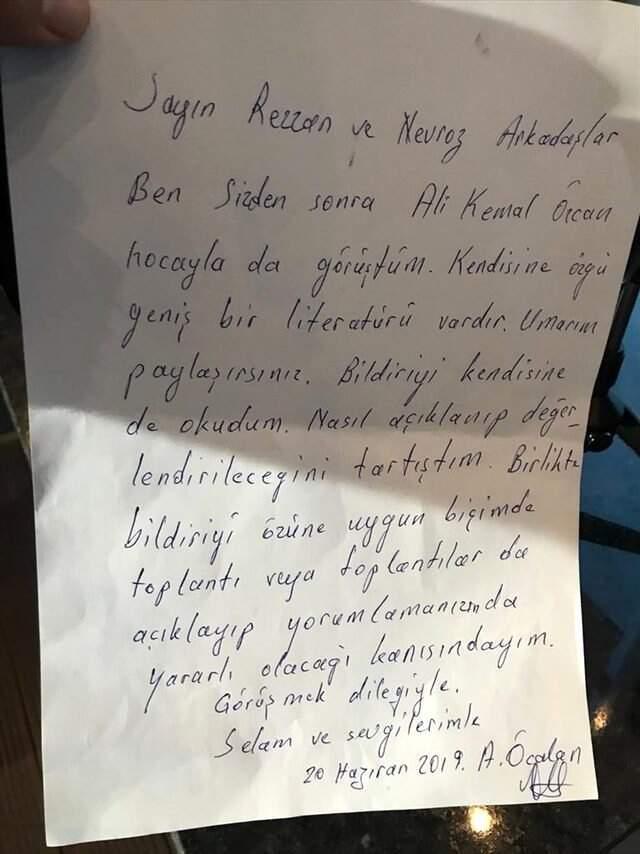 Sayın Rezzan ve Nevroz Arkadaşlar
Ben Sizden sonra Ali Kemal Özcan
hocayla da görüştüm. Kendisine özgü
geniş bir literatürü vardır. Umarım
paylaşırsınız. Bildiriyi kendisine
de okudum. Nasıl açıklanıp değer-
lendirileceğini tartıştım. Birlikte
bildiriyi özüne uygun biçimde
toplantı veya toplantılar da
açıklayıp yorumlamanızında
yararlı olacaği kanısındayım.
Görüşmek dileğiyle.
Selam ve sevgilerimle
20 Haziran 2019. A. Öcalan